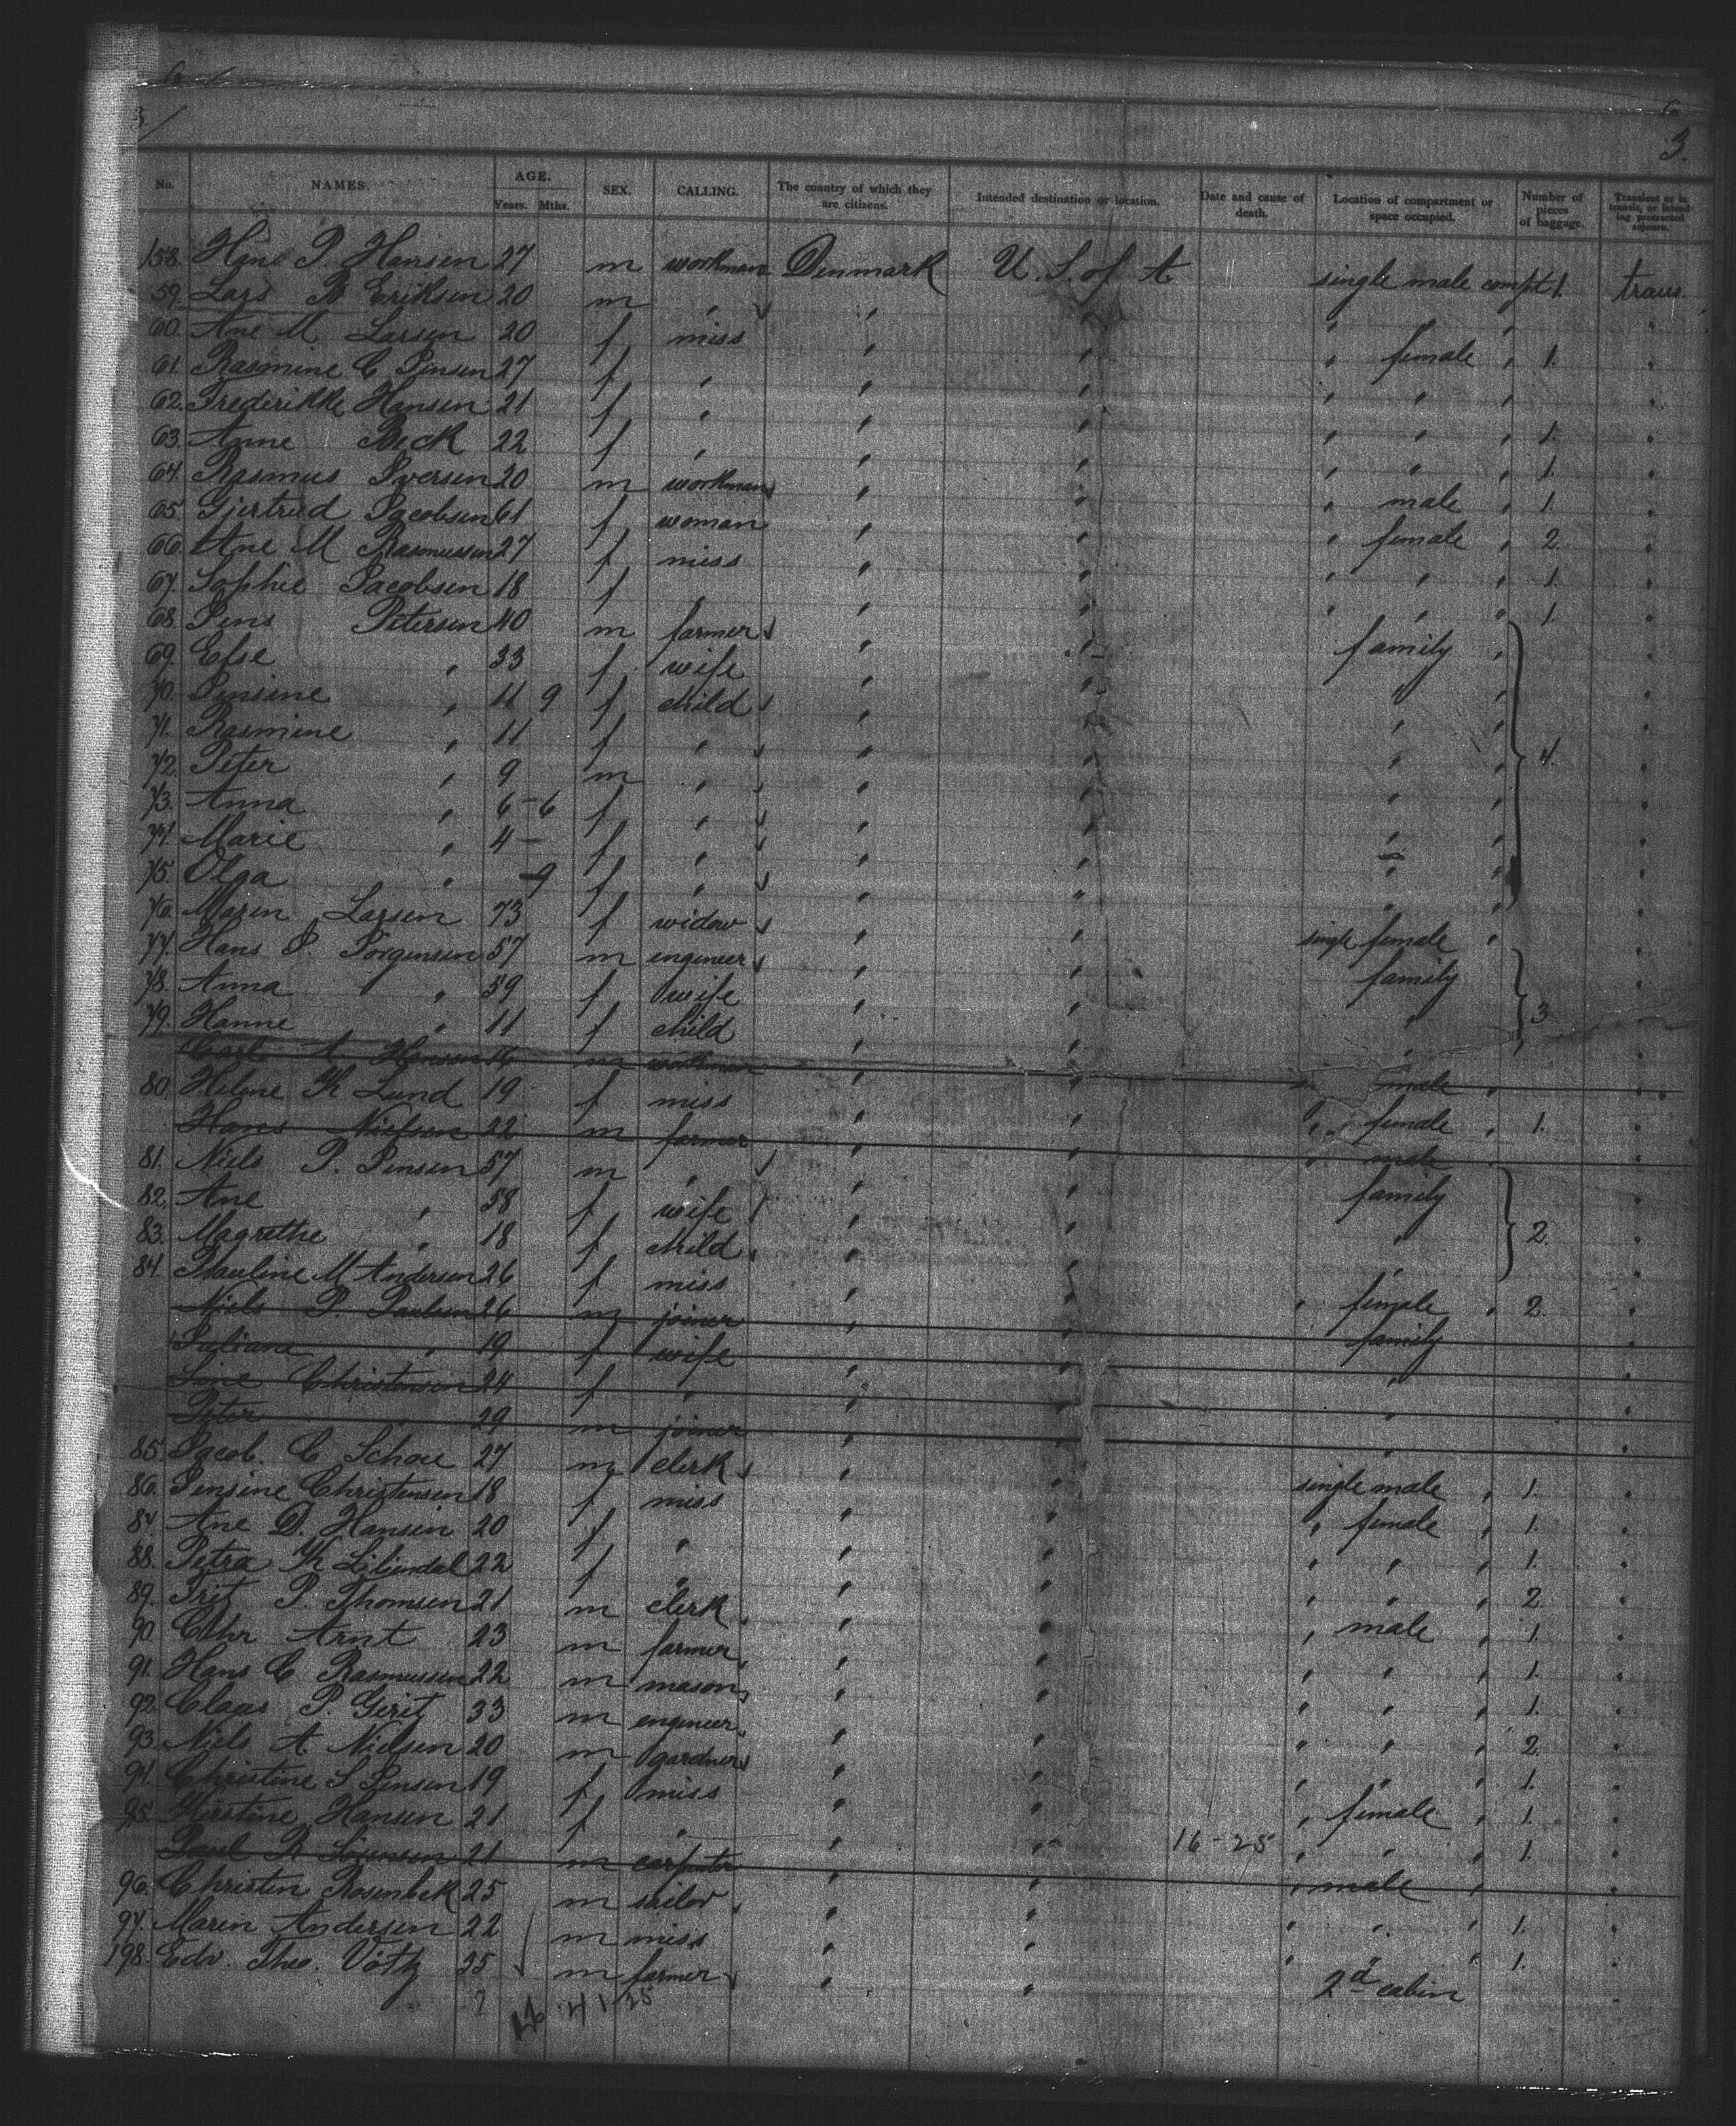 3
3.
No. NAMES. AGE. Years. Mths. SEX. CALLING. The country of which they are citizens. Intended destination or location. Date and cause of death. Location of compartment or space occupied. Number of pieces of baggage. Transient or in transit, or intending protracted sojourn.
158. Hans P Hansen 27 m workman Denmark U. S. of A single male compt 1. trans.
59. Lars Eriksen 20 m " " " " " " "
60. Ane M Larsen 20 f miss " " " female " 1. "
61. Rasmine C Jensen 27 f " " " " " " "
62. Frederikke Hansen 21 f " " " " " " 1. "
63. Anne Beck 22 f " " " " " " 1. "
64. Rasmus Iversen 20 m workman " " " male " 1. "
65. Gjertrud Jacobsen 61 f woman " " " female " 2 "
66. Ane M Rasmussen 27 f miss " " " " " 1. "
67. Sophie Jacobsen 18 f " " " " " 1. "
68. Jens Petersen 40 m farmer " " family " "
69. Else " 33 f wife " " " " "
70. Jensine " 11 9 f child " " " " "
71. Rasmine " 11 f " " " " " 4. "
72. Peter " 9 m " " " " " "
73. Anna " 6 - 6 f " " " " " "
74. Marie " 4 - f " " " " " "
75. Olga " - 9 f " " " " " "
76. Maren Larsen 73 f widow " " single female " "
77. Hans J. Jörgensen 57 m engineer " " family "
78. Anna " 59 f wife " " " 3 "
79. Hanne " 11 f child " " " " "
Carl A Hansen 16 m workman " " " male " "
80. Helene K Lund 19 f miss " " " female " 1. "
Hans Nielsen 22 m farmer " " " male " "
81. Niels P. Jensen 57 m " " " family "
82. Ane " 58 f wife " " " 2. "
83. Magrethe " 18 f child " " " "
84. Pauline M Andersen 26 f miss " " " female " 2. "
Niels P Paulsen 26 m joiner " " family "
Juliane " 19 f wife " " " "
Sine Christensen 24 f " " " " "
Peter " 29 m joiner " " " "
85. Jacob. C Schou 27 m clerk " " single male " 1. "
86. Jensine Christensen 18 f miss " " " female " 1. "
87. Ane D. Hansen 20 f " " " " " " 1. "
88. Petra K Lilindal 22 f " " " " " " 2. "
89. Frits P. Thomsen 21 m clerk " " " male " 1. "
90. Chr Arnt 23 m farmer " " " " " 1. "
91. Hans C Rasmussen 22 m mason " " " " " 1. "
92. Claus P. Gerit 33 m engineer " " " " " 2. "
93. Niels A. Nielsen 20 m gardner " " " " " 1. "
94. Christine S Jensen 19 f miss " " " female " 1. "
95. Kirstine Hansen 21 f " " " 16 - 25 " " " 1. "
Paul R Sörensen 21 m carpenter " " " male " "
96. Christen Rosenbek 25 m sailor " " " " " 1. "
97. Maren Andersen 22 m miss " " " " " 1. "
198. Edv. Theo. 35 m farmer " " 2d cabin